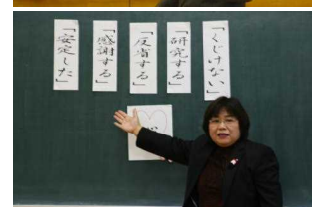 「くじけない」
「研究する」
「反省する」
「感謝する」
「安定した」